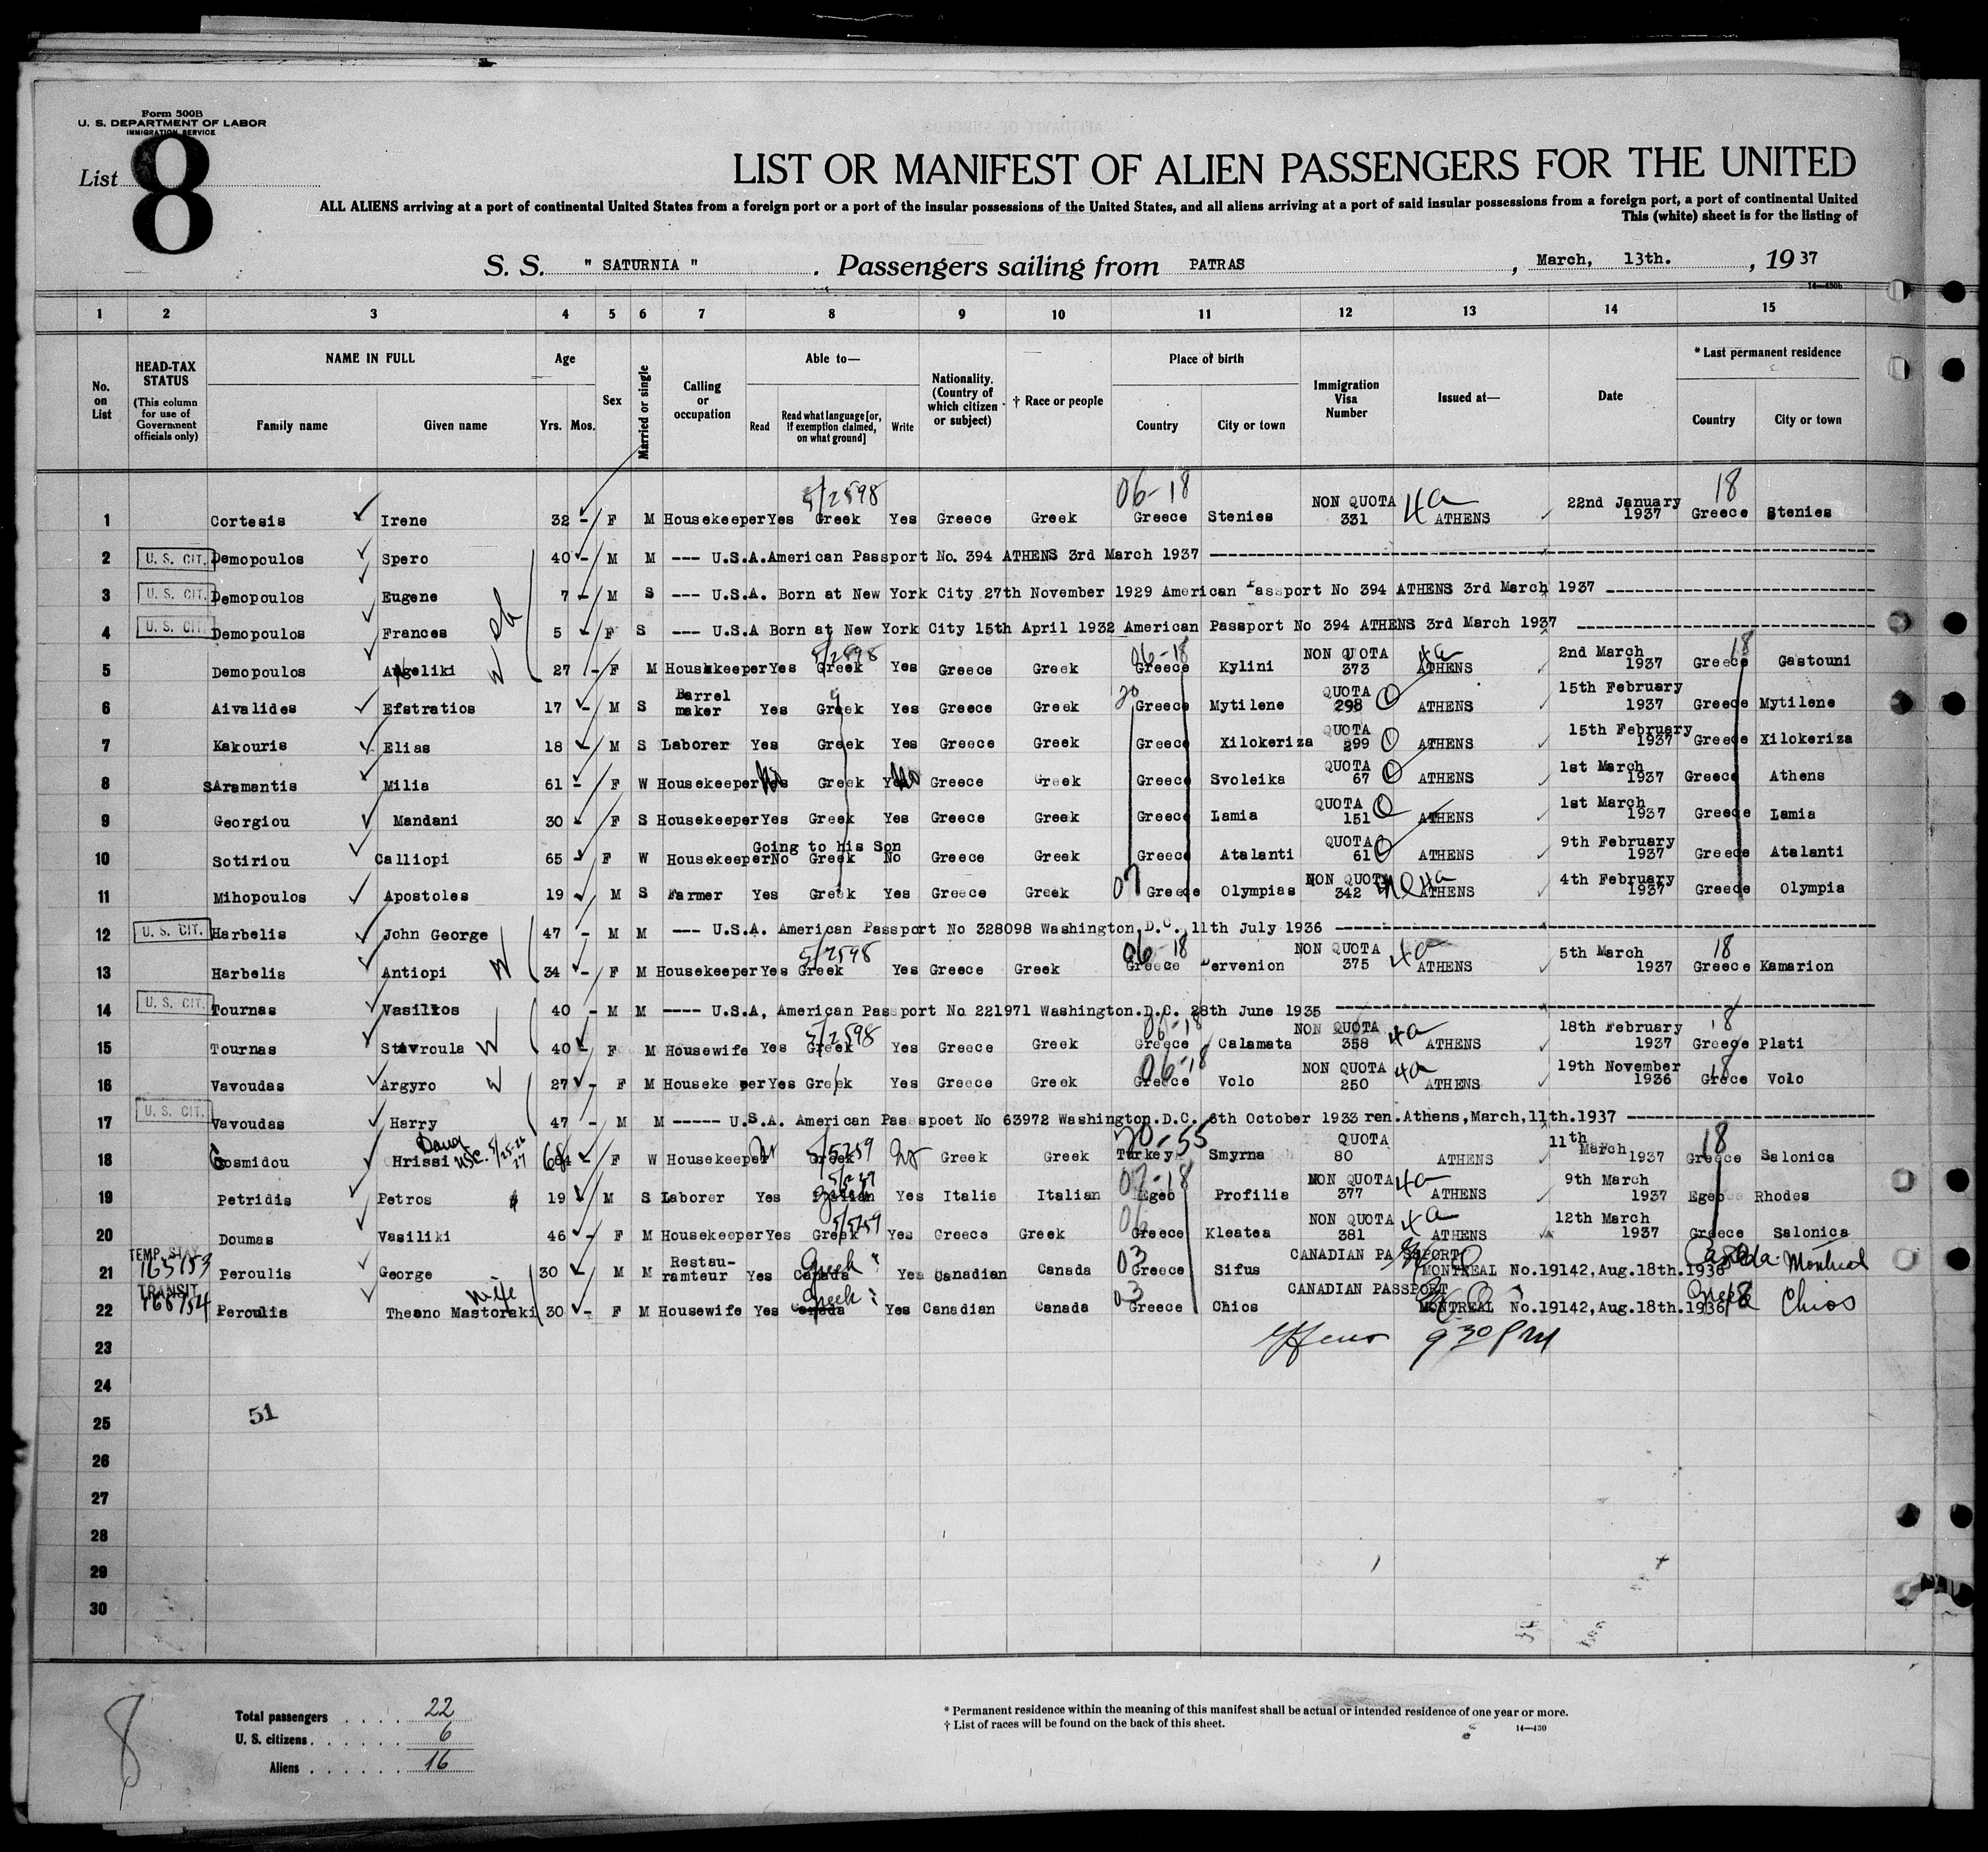 Form 500B
U. S. DEPARTMENT OF LABOR
IMMIGRATION SERVICE
List 8
LIST OR MANIFEST OF ALIEN PASSENGERS FOR THE UNITED
ALL ALIENS arriving at a port of continental United States from a foreign port or a port of the insular possessions of the United States, and all aliens arriving at a port of said insular possessions from a foreign port, a port of continental United
This (white) sheet is for the listing of
S. S. " SATURNIA " . Passengers sailing from PATRAS , March, 13th. , 19 37
14—430b
1 2 3 4 5 6 7 8 9 10 11 12 13 14 15
No. on List
HEAD-TAX STATUS (This column for use of Government officials only)
NAME IN FULL Family name Given name
Age Yrs. Mos.
Sex
Married or single
Calling or occupation
Able to— Read Read what language [or, if exemption claimed, on what ground] Write
Nationality. (Country of which citizen or subject)
† Race or people
Place of birth Country City or town
Immigration Visa Number
Issued at—
Date
* Last permanent residence Country City or town
5/2598 06-18 18
1 Cortesis Irene 32 - F M Housekeeper Yes Greek Yes Greece Greek Greece Stenies NON QUOTA 331 4a ATHENS 22nd January 1937 Greece Stenies
2 U. S. CIT. Demopoulos Spero 40 - M M --- U.S.A. American Passport No. 394 ATHENS 3rd March 1937
3 U. S. CIT. Demopoulos Eugene 7 - M S --- U.S.A. Born at New York City 27th November 1929 American Passport No 394 ATHENS 3rd March 1937
4 U. S. CIT. Demopoulos Frances 5 F S --- U.S.A Born at New York City 15th April 1932 American Passport No 394 ATHENS 3rd March 1937
5/2598 06-18 18
5 Demopoulos Angeliki W 27 - F M Housekeeper Yes Greek Yes Greece Greek Greece Kylini NON QUOTA 373 4a ATHENS 2nd March 1937 Greece Gastouni
6 Aivalides Efstratios 17 - M S Barrel maker Yes Greek Yes Greece Greek Greece Mytilene QUOTA 298 ATHENS 15th February 1937 Greece Mytilene
7 Kakouris Elias 18 - M S Laborer Yes Greek Yes Greece Greek Greece Xilokeriza QUOTA 299 ATHENS 15th February 1937 Greece Xilokeriza
8 SAramantis Milia 61 - F W Housekeeper No Greek No Greece Greek Greece Svoleika QUOTA 67 ATHENS 1st March 1937 Greece Athens
9 Georgiou Mandani 30 - F S Housekeeper Yes Greek Yes Greece Greek Greece Lamia QUOTA 151 ATHENS 1st March 1937 Greece Lamia
Going to his Son
10 Sotiriou Calliopi 65 - F W Housekeeper No Greek No Greece Greek Greece Atalanti QUOTA 61 ATHENS 9th February 1937 Greece Atalanti
11 Mihopoulos Apostoles 19 - M S Farmer Yes Greek Yes Greece Greek 07 Greece Olympias NON QUOTA 342 4a ATHENS 4th February 1937 Greece Olympia
12 U. S. CIT. Harbelis John George 47 - M M --- U.S.A. American Passport No 328098 Washington.D.C. 11th July 1936
5/2598 06-18 18
13 Harbelis Antiopi W 34 - F M Housekeeper Yes Greek Yes Greece Greek Greece ervenion NON QUOTA 375 4a ATHENS 5th March 1937 Greece Kamarion
14 U. S. CIT. Tournas Vasilios 40 - M M ---- U.S.A, American Passport No 221971 Washington.D.C. 28th June 1935
5/2598 06-18 18
15 Tournas Stavroula W 40 - F M Housewife Yes Greek Yes Greece Greek Greece Calamata NON QUOTA 358 4a ATHENS 18th February 1937 Greece Plati
06-18 18
16 Vavoudas Argyro W 27 - F M Houseke per Yes Greek Yes Greece Greek Greece Volo NON QUOTA 250 4a ATHENS 19th November 1936 Grece Volo
17 U. S. CIT. Vavoudas Harry 47 - M M ----- U.S.A. American Passpoet No 63972 Washington.D.C. 6th October 1933 ren.Athens,March,11th.1937
5/5259 20-55 18
18 Cosmidou Hrissi 68 - F W Housekeeper Greek Greek Greek Turkey Smyrna QUOTA 80 ATHENS 11th March 1937 Greece Salonica
19 Petridis Petros 19 - M S Laborer Yes Yes Italia Italian Egeo Profilia NON QUOTA 377 4a ATHENS 9th March 1937 Egeo Rhodes
5/5259
20 Doumas Vasiliki 46 - F M Housekeeper Yes Greek Yes Greece Greek Greece Kleatea NON QUOTA 381 4a ATHENS 12th March 1937 Greece Salonica
21 TEMP. STAY 165153 Peroulis George 30 - M M Restau- ramteur Yes Greek Canada Yes Canadian Canada 03 Greece Sifus CANADIAN PASSPORT MONTREAL No.19142,Aug.18th.1936 Canada Montreal
22 TRANSIT 168754 Peroulis Theeno Mastoraki wife 30 - F M Housewife Yes Greek Canada Yes Canadian Canada 03 Greece Chios CANADIAN PASSPORT MONTREAL No.19142,Aug.18th.1936 Greece Chios
23 9 30 PM
24
25 51
26
27
28
29
30
8
Total passengers . . . . 22
U. S. citizens . . . . . . 6
Aliens . . . . . . 16
* Permanent residence within the meaning of this manifest shall be actual or intended residence of one year or more.
† List of races will be found on the back of this sheet.
14—430